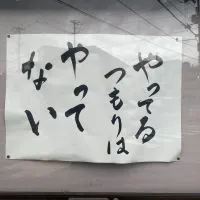 やってる
つもりは
やって
ない